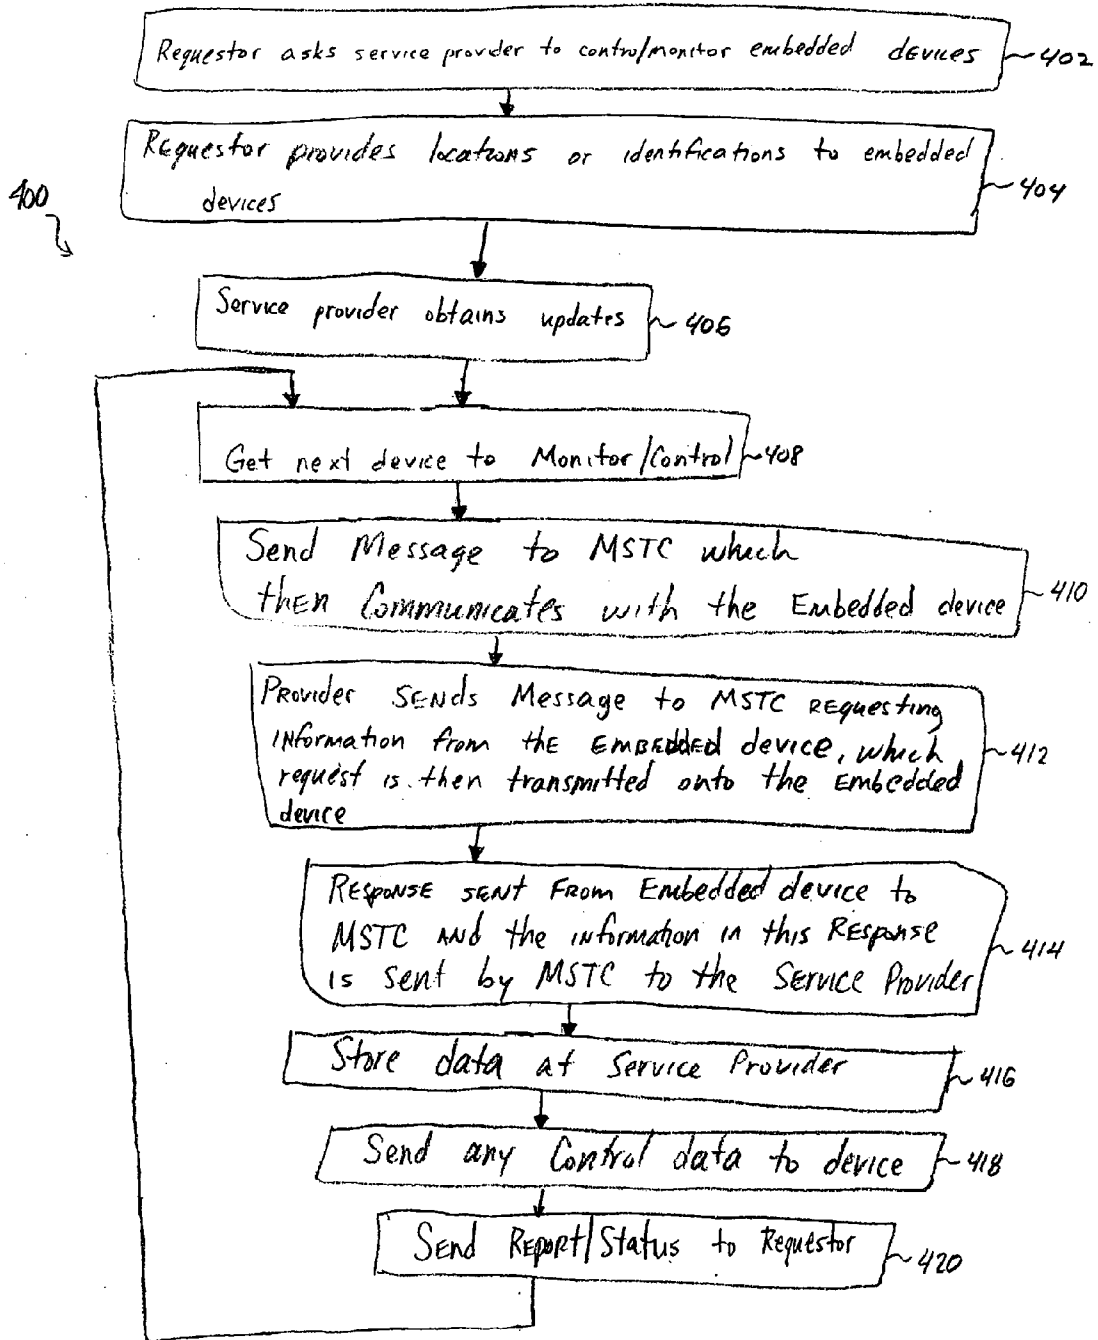 Requestor asks service provider to control/monitor embedded devices 402
Requestor provides locations or identifications to embedded
devices
404
400
Service provider obtains updates 406
Get next device to Monitor/Control 408
Send Message to MSTC which
then Communicates with the Embedded device 410
Provider sends Message to MSTC requesting
information from the Embedded device, which
request is then transmitted onto the Embedded
device
412
Response sent from Embedded device to
MSTC and the information in this Response
is sent by MSTC to the Service Provider
414
Store data at Service Provider 416
Send any Control data to device 418
Send Report/Status to Requestor 420